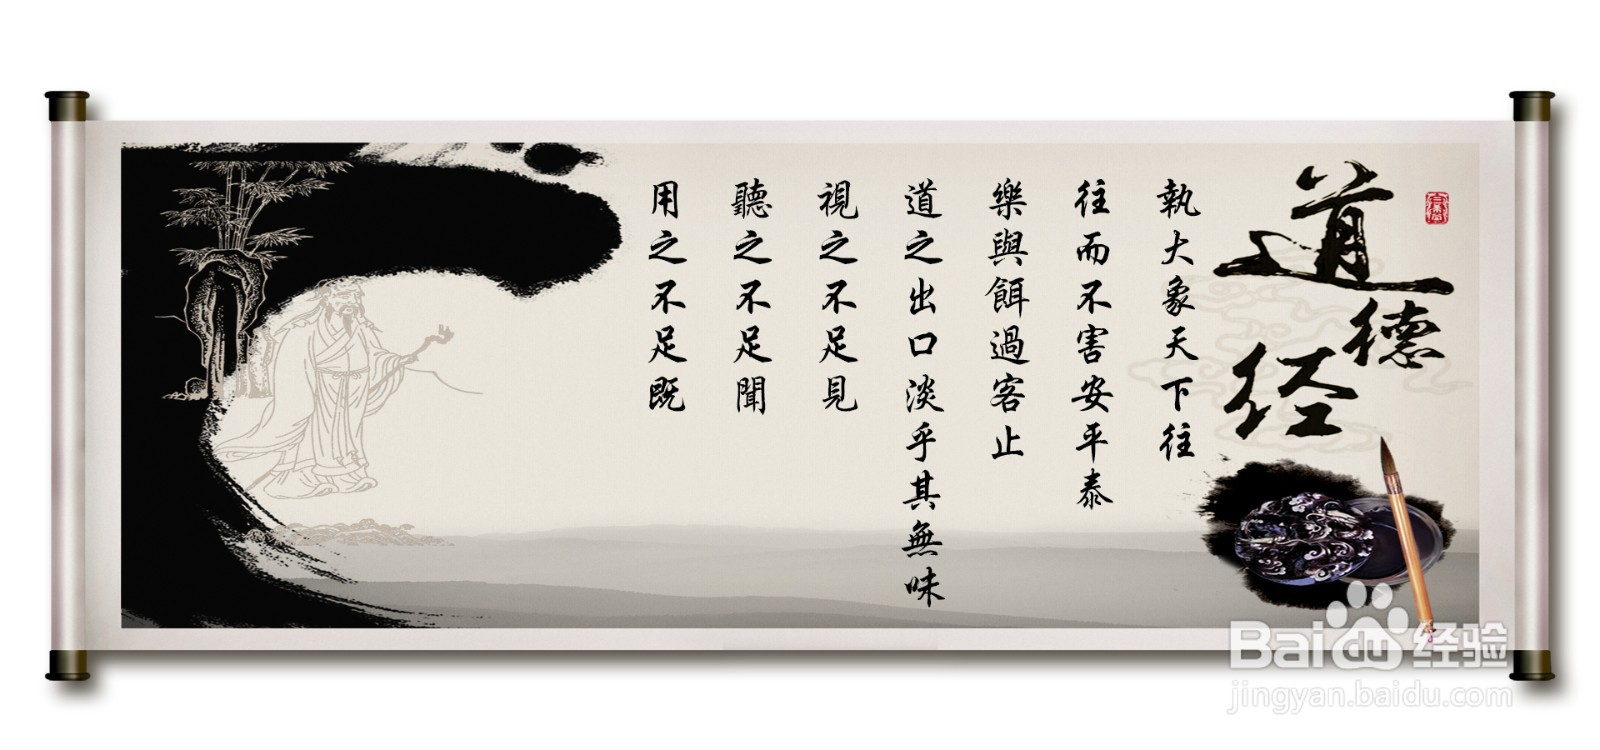 道德经
執大象天下往
往而不害安平泰
樂與餌過客止
道之出口淡乎其無味
視之不足見
聽之不足聞
用之不足既
Baidu 经验
jingyan.baidu.com